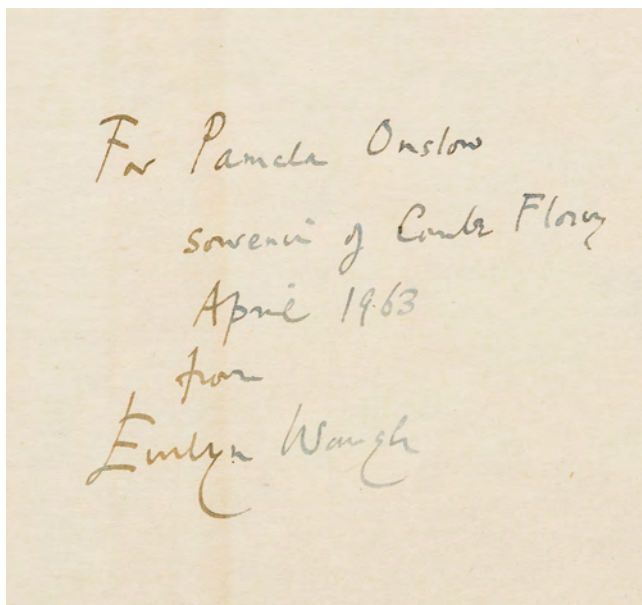 For Pamela Onslow
souvenir of Combe Florey
April 1963
from
Evelyn Waugh